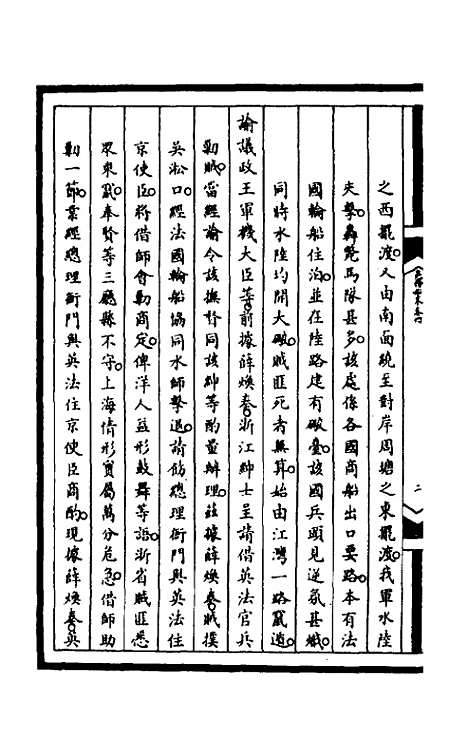 之西罷渡又由南面繞至對岸周塘之東罷渡我軍水陸
夾擊轟斃馬隊甚多該處係各國商船出口要路本有法
國輪船住泊並在陸路建有破臺該國兵頭見逆氛甚熾
同時水陸均開大破賊匪死者無算始由江灣一路竄逋
諭議政王軍機大臣等前據薛煥奏浙江紳士至請借英法官兵
勦賊當經諭令該撫督同該紳等酌量辦理茲據薛煥奏賊撲
吳淞口經法國輪船協同水師擊退請飭總理衙門與英法住
京使臣將借師會勦商定俾洋人益形鼓舞等語浙省賊匪悉
眾東竄奉賢等三廳縣不守上海情形實屬萬分危急借師助
勦一節業經總理衙門與英法住京使臣商酌現據薛煥奏英
二